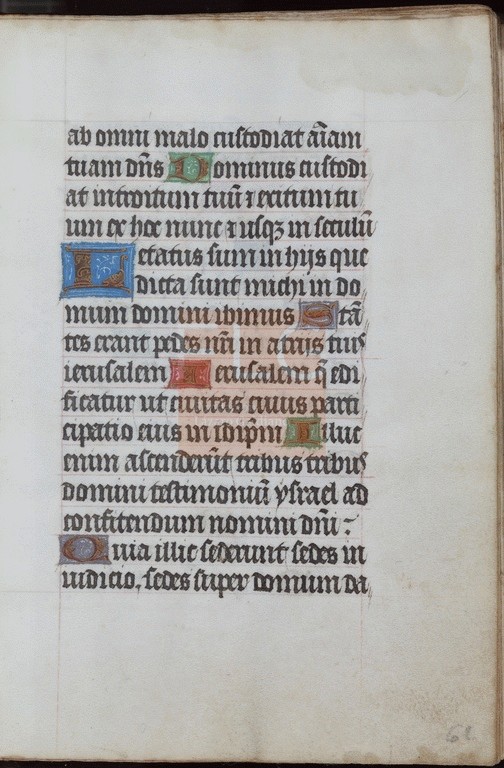 ab omni malo custodiat aīam
tuam dn̄s Dominus custodi
at introitum tuū ⁊ exitum tu
um ex hoc nunc ⁊ usqꝫ in seculū
Letatus sum in hijs que
dicta sunt michi in do
mum domini ibimus Stā
tes erant pedes nr̄i in atrijs tuis
ierusalem Ierusalem q̄ edi
ficatur ut ciuitas cuius parti
cipatio eius in idip̄m Illuc
enim ascenderūt tribus tribus
domini testimoniū ysrael ad
confitendum nomini dn̄i
Quia illic sederunt sedes in
iudicio, sedes super domum da
61